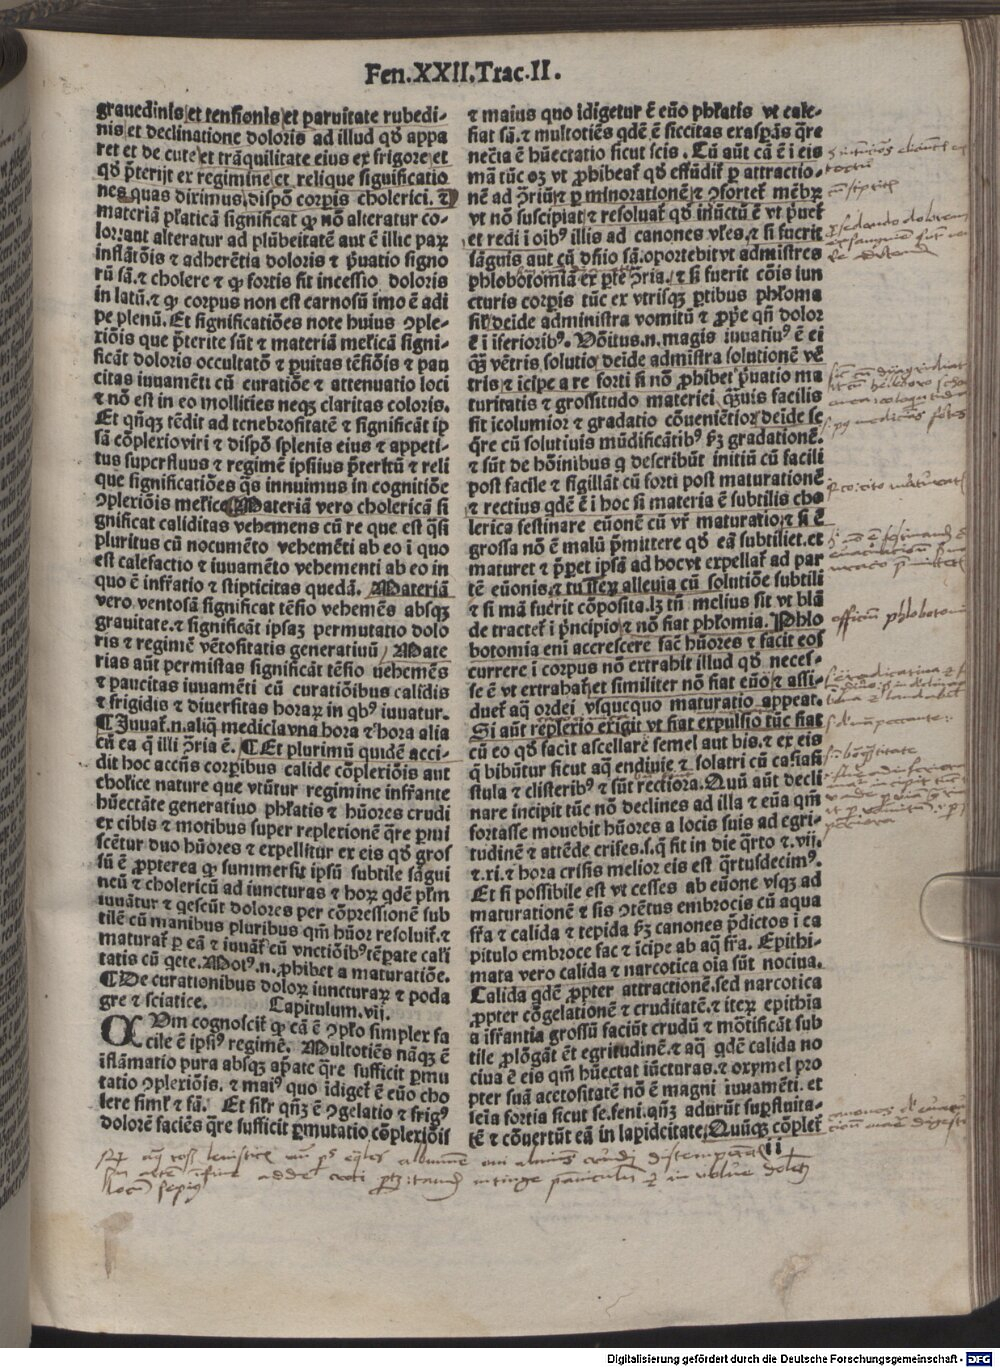 Fen.XXII.Trac.II.
grauedinis et tensionis et paruitate rubedi-
nis et declinatione doloris ad illud qď appa
ret et de cute et trāquilitate eius ex frigore et
qď p̄terijt ex regimine et relique significatio
nes quas diximus dispō corpis cholerici. ⁊
materiā pl̄aticā significat ꝙ nō alteratur co-
lor: aut alteratur ad plūbeitatē aut ē illic par
inflatōis ⁊ adherētia doloris ⁊ p̄uatio signo
rū sā. ⁊ cholere ⁊ ꝙ fortis sit incessio doloris
in latū. ⁊ ꝙ corpus non est carnosū imo ē adi
pe plenū. Et significatiōes note huius ꝯple-
xiōis que p̄terite sūt ⁊ materiā mel̄icā signi-
ficāt doloris occultatō ⁊ p̄uitas tēsiōis ⁊ pau
citas iuuamēti cū curatiōe ⁊ attenuatio loci
⁊ nō est in eo mollities neqꝫ claritas coloris.
Et qn̄qꝫ tēdit ad tenebrositatē ⁊ significāt ip
sā cōplexioviri ⁊ dispō splenis eius ⁊ appeti-
tus superfluus ⁊ regimē ipsius p̄teritū ⁊ reli
que significatiōes q̄s innuimus in cognitiōe
ꝯplexiōis mel̄ice. Materiā vero cholericā si
gnificat caliditas vehemens cū re que est q̄si
pluritus cū nocumēto vehemēti ab eo i quo
est calefactio ⁊ iuuamēto vehementi ab eo in
quo ē infr̄atio ⁊ stipticitas quedā. Materiā
vero ventosā significat tēsio vehemēs absqꝫ
grauitate. ⁊ significāt ipsaꝫ permutatio dolo
ris ⁊ regimē vētositatis generatiuū. Mate
rias aūt permistas significāt tēsio uehemēs
⁊ paucitas iuuamēti cū curatiōibus calidis
⁊ frigidis ⁊ diuersitas horaꝝ in qbꝰ iuuatur.
¶Iuuat̄.n.aliq̄ medicīa vna hora ⁊ hora alia
cū ea q̄ illi ꝯria ē. ¶Et plurimū quidē acci-
dit hoc accn̄s corpībus calide cōplexiōis aut
cholice nature que vtūtur regimine infr̄ante
huēctāte generatiuo phl̄atis ⁊ hūores crudi
ex cibis ⁊ motibus super replexionē q̄re pmi
scētur duo hūores ⁊ expellītur ex eis qď gros
sū ē ꝓpterea ꝙ summersit ipsū subtile sāgui
neū ⁊ cholericū ad iuncturas ⁊ hoꝝ qdē pl̄m
iuuātur ⁊ qescūt dolores per cōpressionē sub
tilē cū manibus pluribus qm̄ hūor resoluit̄. ⁊
maturat̄ p eā ⁊ iuuat̄ cū vnctiōibꝰ tēp̄ate cali
tatis cū qete. Motꝰ.n.ꝓhibet a maturatiōe.
¶De curationibus doloꝝ iuncturaꝝ ⁊ poda
gre ⁊ sciatice. Capitulum.vij.
QVm cognoscit̄ ꝙ cā ē ꝯplō simplex fa
cile ē ipsiꝰ regimē. Multotiēs nāqꝫ ē
īflāmatio pura absqꝫ ap̄ate q̄re sufficit pmu
tatio ꝯplexiōis. ⁊ maiꝰ quo īdiget̄ ē euō cho
lere siml̄ ⁊ sā. Et sil̄r qn̄qꝫ ē ꝯgelatio ⁊ frigꝰ
dolorē faciēs q̄re sufficit pmutatio cōplexiōis
⁊ maius quo idigetur ē euō phl̄atis vt cale-
fiat sā. ⁊ multotiēs qdē ē siccitas exasp̄ās q̄re
necīa ē hūectatio sicut scis. Cū aūt cā ē i eis
mā tūc oꝫ vt ꝓhibeat̄ qď effūdit̄ p attractio-
nē ad ꝯriū ⁊ p minorationē ⁊ ꝯfortet̄ mēbꝝ
vt nō suscipiat ⁊ resoluat̄ qď inūctū ē vt p̄uet̄
et redi i oibꝰ illis ad canones vl̄es. ⁊ si fuerit
sāguis aut cū dn̄io sā. oportebit vt admistres
phlobotomiā ex p̄te ꝯria. ⁊ si fuerit cōis iun
cturis corpis tūc ex vtrisqꝫ ptibus phl̄oma
sil̄ deide administra vomitū ⁊ ꝓpe qn̄ dolor
ē i iferioribꝰ. Vōitus.n.magis iuuatiuꝰ ē ei
q̄ꝫ vētris solutio deide admīstra solutionē vē
tris ⁊ icipe a re forti si nō ꝓhibet p̄uatio ma
turitatis ⁊ grossitudo materiei q̄ꝫuis facilis
sit icolumior ⁊ gradatio cōueniētior deide se
q̄re cū solutiuis mūdificātibꝰ ẜꝫ gradationē.
⁊ sūt de hōinibus q describūt initiū cū facili
post facile ⁊ sigillāt cū forti post maturationē
⁊ rectius qdē ē i hoc si materia ē subtilis cho
lerica festinare euōnē cū vr̄ maturatio ⁊ si ē
grossa nō ē malū p̄mittere qď eā subtiliet. et
maturet ⁊ p̄pret ipsā ad hoc vt expellat̄ ad par
tē euōnis. ⁊ tu semꝑ alleuia cū solutiōe subtili
⁊ si mā fuerit cōposita. lꝫ tn̄ melius sit vt blā
de tractet̄ i p̄ncipio ⁊ nō fiat phl̄omia. Phlo
botomia eni acrescere fac̄ hūores ⁊ facit eos
currere i corpus nō extrahit illud qď neces-
se ē vt extrahat̄. et similiter nō fiat euō ⁊ assi-
duet̄ aq̄ ordei vsqucquo maturatio appeat.
Si aūt replexio exigit vt fiat expulsio tūc fiat
cū eo qď facit ascellare semel aut bis. ⁊ ex eis
q̄ bibūtur sicut aq̄ endiuie ⁊ solatri cū casiafi
stula ⁊ clisteribꝰ ⁊ sūt rectiora. Quū aūt decli
nare incipit tūc nō declines ad illa ⁊ euā qm̄
fortasse mouebit hūores a locis suis ad egri-
tudinē ⁊ attēde crises. s. q̄ fit in die q̄rto ⁊.vij.
⁊.xi. ⁊ hora crisis melior eis est q̄rtusdecimꝰ.
Et si possibile est vt cesses ab euōne vsqꝫ ad
maturationē ⁊ sis ꝯtētus embrocis cū aqua
fr̄a ⁊ calida ⁊ tepida ẜꝫ canones p̄dictos i ca
pitulo embroce fac ⁊ icipe ab aq̄ fr̄a. Epithi-
mata vero calida ⁊ narcotica oia sūt nociua.
Calida qdē ꝓpter attractionē. sed narcotica
ꝓpter cōgelationē ⁊ cruditatē. ⁊ iteꝝ epithia
a ifr̄antia grossū faciūt crudū ⁊ mōtificāt sub
tile ꝓlōgāt ēt egritudinē. ⁊ aq̄ qdē calida no
ciua ē eis qm̄ hūectat iūcturas. ⁊ oxymel pro
pter suā acetositatē nō ē magni iuuamēti. et
seia fortia sicut se. feni. qn̄qꝫ adurūt supfluita-
tē ⁊ cōuertūt eā in lapideitatē. Quūqꝫ cōplet̄
ii
officiū phlobotom
Digitalisierung gefördert durch die Deutsche Forschungsgemeinschaft - DFG